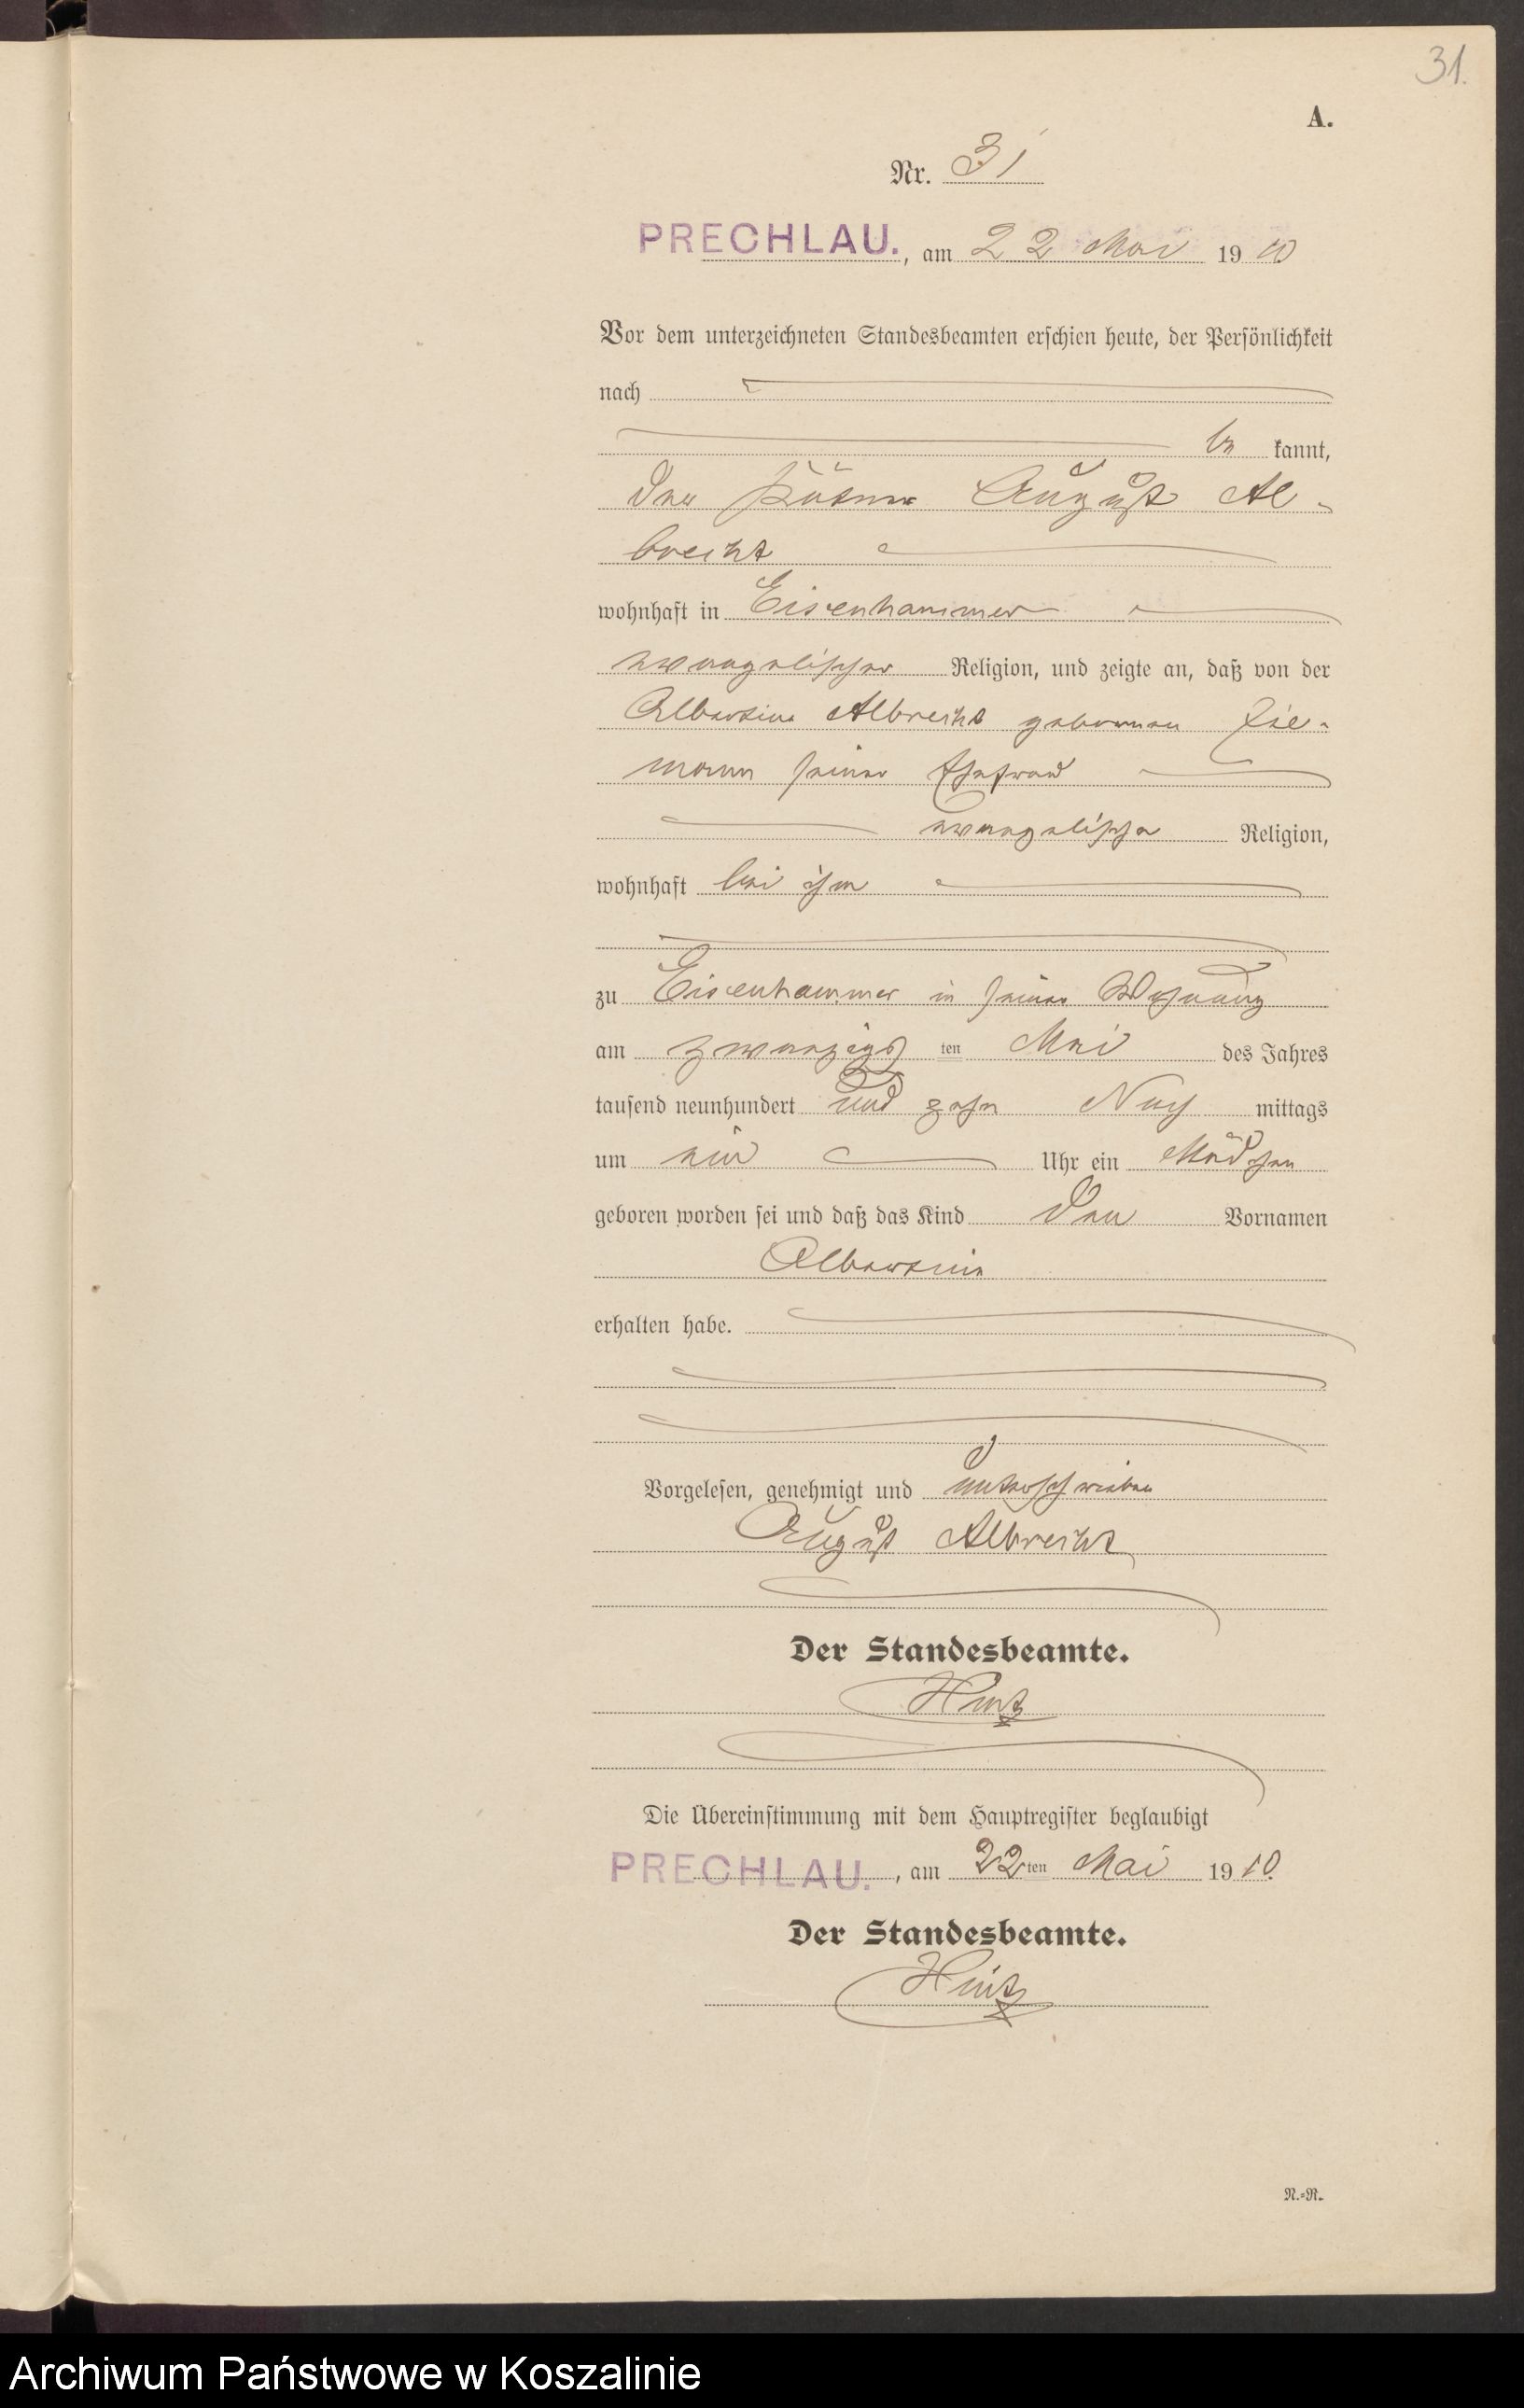 31.
A.
Nr. 31
PRECHLAU., am 22 Mai 1910
Vor dem unterzeichneten Standesbeamten erschien heute, der Persönlichkeit
nach
be kannt,
der August Al-
brecht
wohnhaft in Eisenhammer
evangelischer Religion, und zeigte an, daß von der
Albertine Albrecht geborenen Zie-
mann seiner Ehefrau
evangelischer Religion,
wohnhaft bei ihm
zu Eisenhammer in seiner Wohnung
am zwanzigsten Mai des Jahres
tausend neunhundert und zehn Nach mittags
um Uhr ein Mädchen
geboren worden sei und daß das Kind den Vornamen
Albertine
erhalten habe.
Vorgelesen, genehmigt und unterschrieben
August Albrecht
Der Standesbeamte.
Hintz
Die Übereinstimmung mit dem Hauptregister beglaubigt
PRECHLAU., am 22ten Mai 1910.
Der Standesbeamte.
Hintz
N.=R.
Archiwum Państwowe w Koszalinie